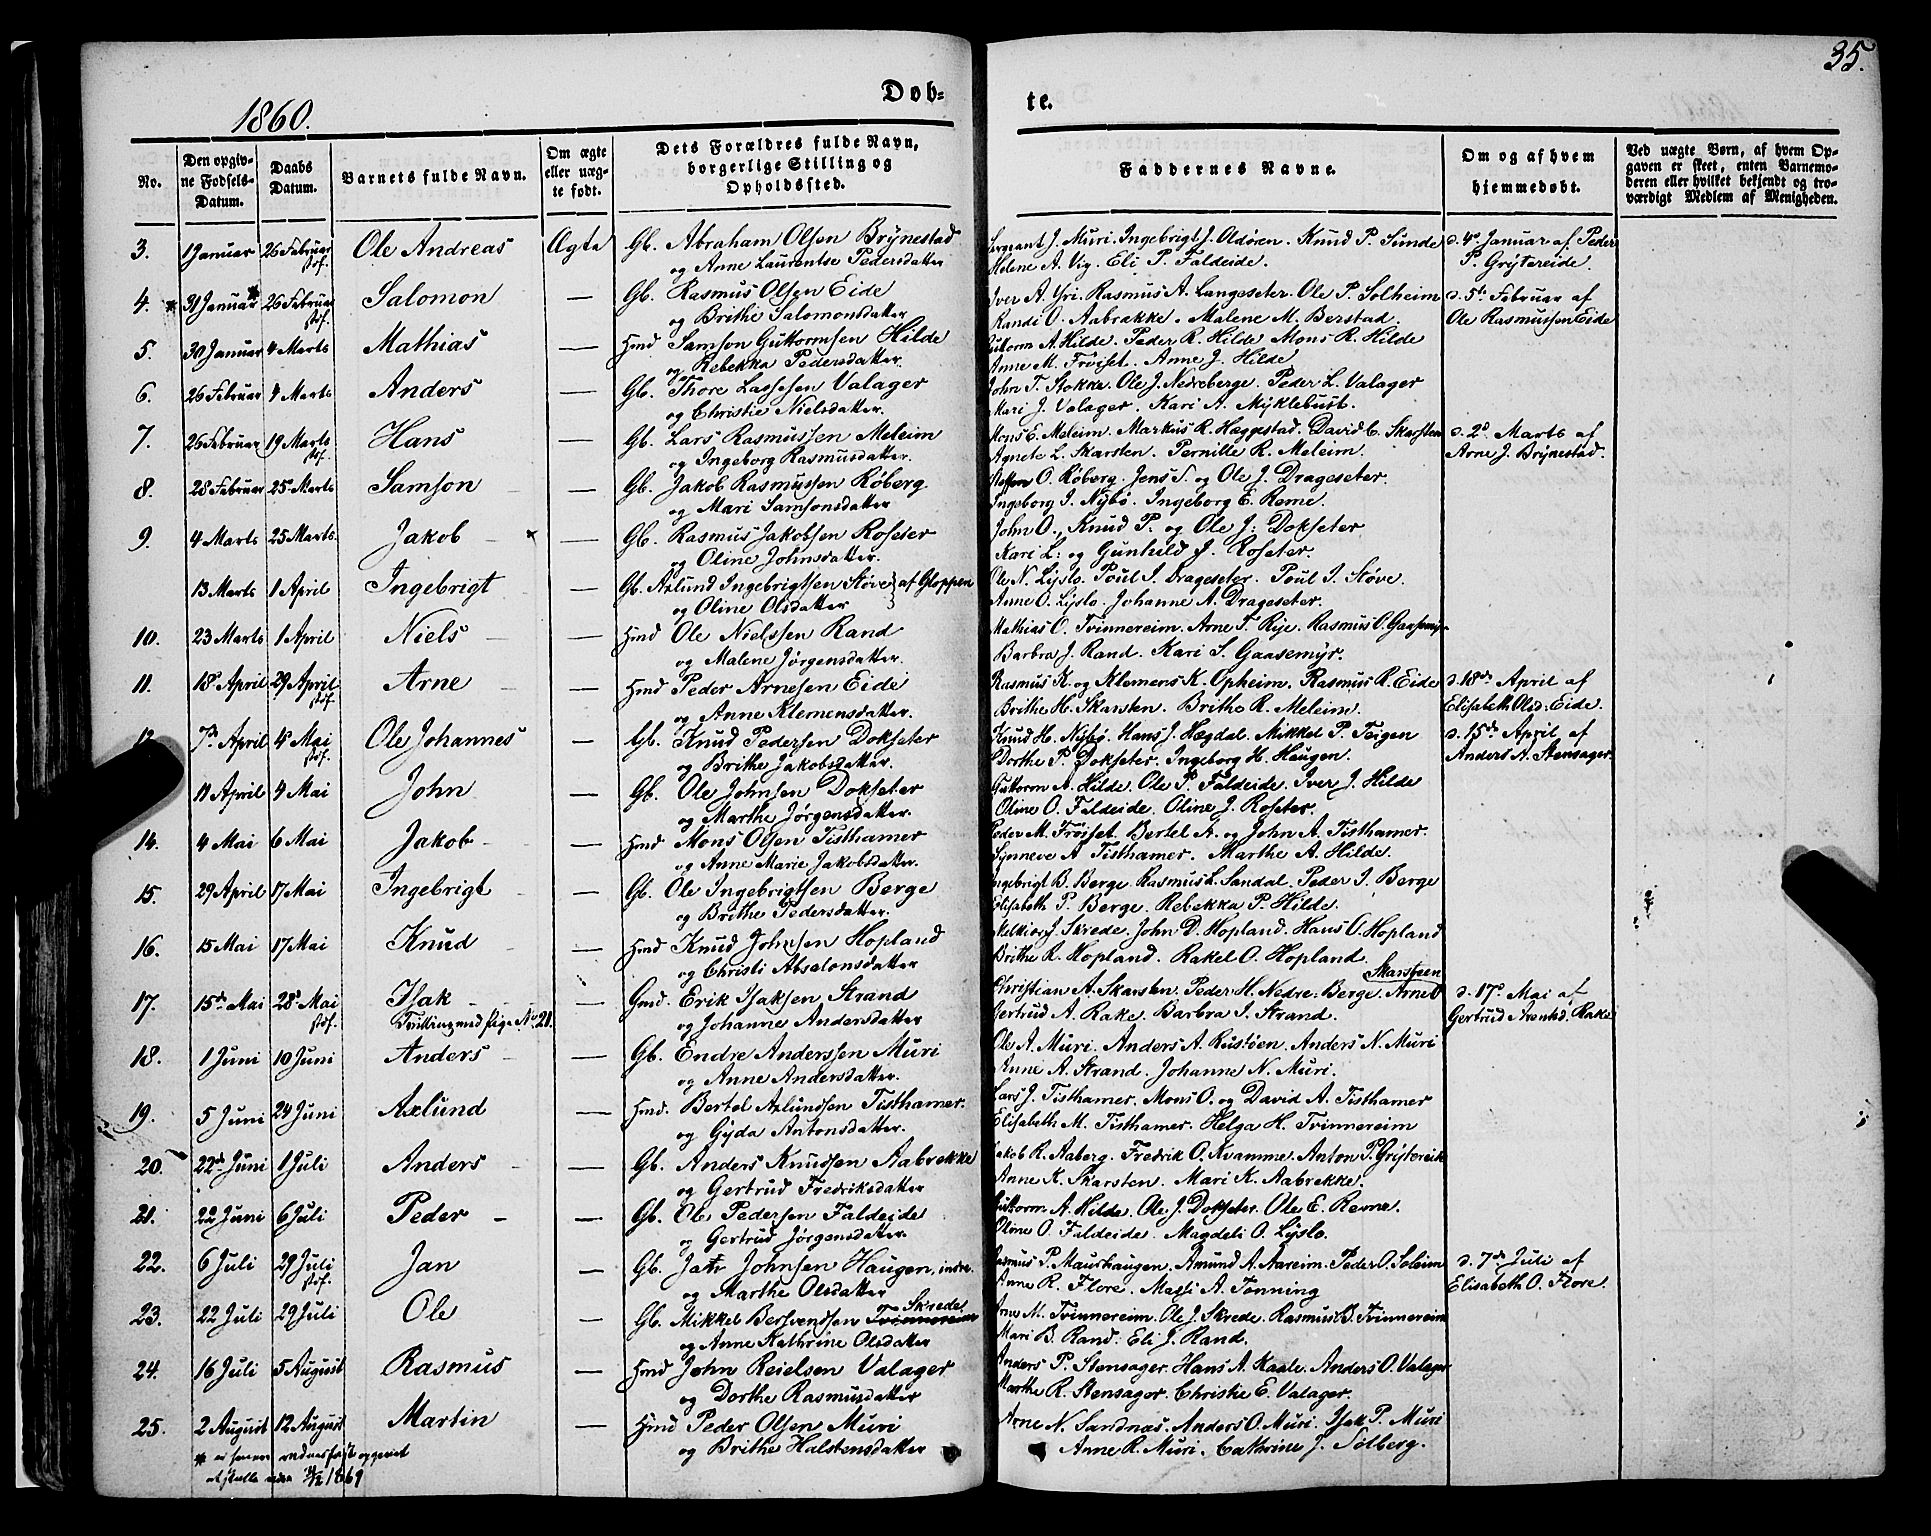 35.
1860.
Døb-
te.
No.
Den opgiv-
ne Fødsels-
Datum.
Daabs
Datum.
Barnets fulde Navn.
Om ægte
eller uæg-
te født.
Dets Forældres fulde Navn,
borgerlige Stilling og
Opholdssted.
Faddernes Navne.
Om og af hvem
hjemmedøbt.
Ved uægte Børn, af hvem Op-
gaven er skeet, enten Barnemo-
deren eller hvilket bekjendt og tro-
værdigt Medlem af Menigheden.
3. 1 Januar 26 Februar Ole Andreas Ægte Gb. Abraham Olsen Brynestad Sergeant J. Muri. Ingebrigt J. Oldøren. Knud P. Sunde d. 4de Januar af Peder
stof. og Anne Laurentse Pedersdatter Helene A. Vig. Eli P. Faldeide. P. Grytereide.
4. * 31 Januar * 26 Februar Salomon — Gb. Rasmus Olsen Eide Iver A. Yri. Rasmus A. Langeseter. Ole P. Solheim d. 5te Februar af
stof. og Brithe Salomonsdatter Randi O. Aabrekke. Malene M. Berstad. Ole Rasmussen Eide
5. 30 Januar 4 Marts Mathias — Hmd Samson Guttormsen Hilde Guttorm A. Hilde. Peder R. Hilde Mons R. Hilde
og Rebekka Pedersdatter. Anne M. Frøiset. Anne J. Hilde
6. 26 Februar 4 Marts Anders — Gb. Thore Lassesen Valager John T. Stokke. Ole J. Nedreberge. Peder L. Valager
og Christie Nielsdatter. Mari J. Valager. Kari A. Myklebust.
7. 26 Februar 19 Marts Hans — Gb. Lars Rasmussen Meleim Mons E. Meleim. Markus R. Hæggestad. David C. Skarsten d. 2de Marts af
stof. og Ingeborg Rasmusdatter. Agnete L. Skarsten. Pernille R. Meleim. Arne J. Brynestad.
8. 28 Februar 25 Marts Samson — Gb. Jakob Rasmussen Røberg Steffen O. Røberg. Jens S. og Ole J. Drageseter.
og Mari Samsonsdatter Ingeborg I. Nybø. Ingeborg E. Reme.
9. 4 Marts 25 Marts. Jakob — Gb. Rasmus Jakobsen Roseter John O., Knud P. og Ole J: Dokseter
og Oline Johnsdatter. Kari L: og Gunhild J. Roseter.
13 Marts 1 April Ingebrigt — Gb. Axlund Ingebrigtsen Støve af Gloppen Ole N. Lyslo. Poul I. Drageseter. Poul I. Støve.
og Oline Olsdatter Anne O. Lyslo. Johanne A. Drageseter.
10. 23 Marts 1 April Niels — Hmd Ole Nielsen Rand Mathias O. Tvinnereim. Arne T. Rye. Rasmus O. Gaasemyr
og Malene Jørgensdatter. Barbra J. Rand. Kari S. Gaasemyr.
11. 18de April 29 April Arne — Hmd Peder Arnesen Eide Rasmus K. og Klemens K. Opheim. Rasmus R. Eide d. 18de April af
stof. og Anne Klemensdatter. Brithe H. Skarsten. Brithe R. Meleim. Elisabeth Olsd. Eide.
7de April 4de Mai Ole Johannes — Gb. Knud Pedersen Dokseter Knud H. Nybø. Hans J. Hægdal. Mikkel P. Teigen d. 15de April af
stof. og Brithe Jakobsdatter. Dorthe P. Dokseter. Ingeborg H. Haugen. Anders A. Stensager.
11 April 4 Mai John — Gb. Ole Johnsen Dokseter Guttorm A. Hilde. Ole P. Faldeide. Iver J. Hilde
og Marthe Jørgensdatter. Oline O. Faldeide. Oline J. Roseter.
14. 4 Mai 6 Mai Jakob — Hmd Mons Olsen Tisthamer Peder M. Frøiset. Bertel A. og John A. Tisthamer.
og Anne Marie Jakobsdatter. Synneve A Tisthamer. Marthe A. Hilde.
15. 29 April 17 Mai Ingebrigt — Gb. Ole Ingebrigtsen Berge Ingebrigt B. Berge. Rasmus L. Sandal. Peder I. Berge
og Brithe Pedersdatter. Elisabeth P. Berge. Rebekka P. Hilde.
16. 15 Mai 17 Mai Knud — Hmd Knud Johnsen Hopland Melkior J. Skrede. John D. Hopland. Hans O. Hopland
og Christi Absalonsdatter Brithe R. Hopland. Rakel O. Hopland.
Skarsteen
17. 15de Mai 28de Mai Isak — Gmd. Erik Isaksen Strand Christian A. Skarsten. Peder H. Nedre-Berge. Arne O d. 17de Mai af
stof. Tvilling med Pige No. 21. og Johanne Andersdatter Gertrud A. Rake. Barbra I. Strand. Gertrud Arentsd. Rake
18. 1 Juni 10 Juni Anders — Gb. Endre Andersen Muri Ole A. Muri. Anders A. Rustøen. Anders N. Muri
og Anne Andersdatter. Anne A. Strand. Johanne N. Muri.
19. 5 Juni 24 Juni Axlund — Hmd. Bertel Axlundsen Tisthamer. Lars J. Tisthamer. Mons O. og David A. Tisthamer
og Gyda Antonsdatter. Elisabeth M. Tisthamer. Helga H. Tvinnereim
20. 22de Juni 1 Juli Anders — Gb. Anders Knudsen Aabrekke Jakob R. Aaberg. Fredrik O. Kvamme. Anton P. Grytereide
og Gertrud Fredriksdatter Anne K. Skarsten. Mari K. Aabrekke.
21. 22 Juni 6 Juli Peder — Gb. Ole Pedersen Faldeide Guttorm A. Hilde. Ole J. Dokseter. Ole E. Reme.
og Gertrud Jørgensdatter. Oline O. Faldeide. Magdeli O. Lyslo.
22. 6 Juli 29 Juli Jan — Gb. Johnsen Haugen, indre. Rasmus P. Maurhaugen. Amund A. Aareim. Peder O. Soleim d. 7de Juli af
stof. og Marthe Olsdatter Anne R. Flore. Massi A. Tonning Elisabeth O. Flore.
Skrede
23. 22 Juli 29 Juli Ole — Gb. Mikkel Bersvendsen Tvinnereim Arne M. Tvinnereim. Ole J. Skrede. Rasmus B. Tvinnereim
og Anne Kathrine Olsdatter Mari B. Rand. Eli J. Rand.
24. 16 Juli 5 August Rasmus — Hmd John Reielsen Valager Anders P. Stensager. Hans A. Kaale. Anders O. Valager
og Dorthe Rasmusdatter Marthe R. Stensager. Christie E. Valager.
25. 2 August 12 August Martin — Hmd Peder Olsen Muri Arne N. Sandnæs. Anders O. Muri. Isak P. Muri
og Brithe Halstensdatter Anne R. Muri. Cathrine J. Solberg.
* er senere opgivet
at skulle være 1869